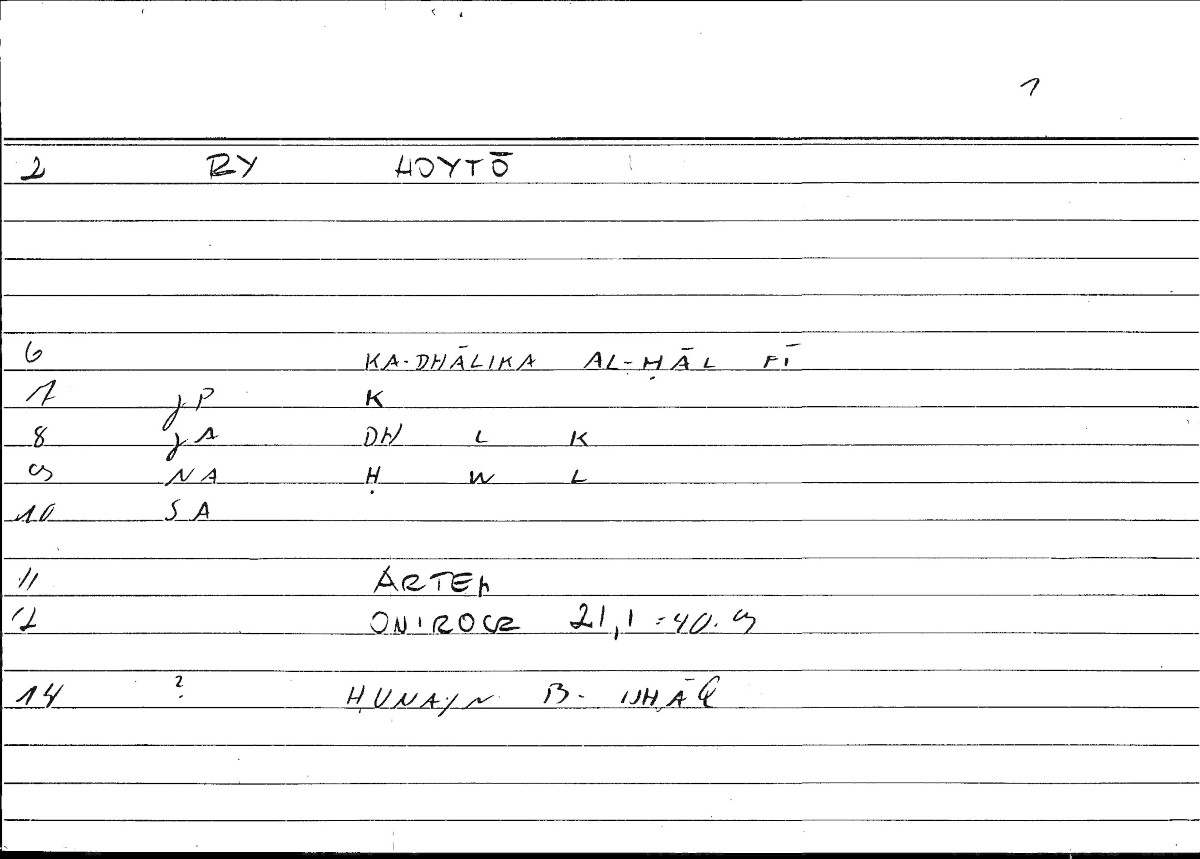 1
2 RY HOYTŌ
6 KA-DHĀLIKA AL-ḤĀL FĪ
7 JP K
8 JA DH L K
9 NA Ḥ W L
10 SA
11 ARTEM
12 ONIROCR 21,1 = 40.9
14 ? ḤUNAYN B- ISḤĀQ